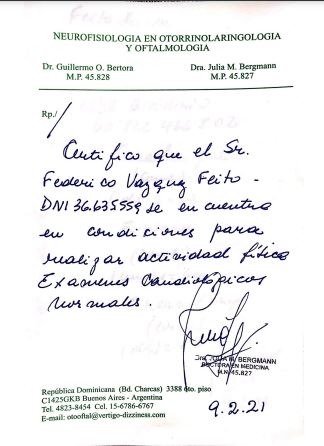 NEUROFISIOLOGIA EN OTORRINOLARINGOLOGIA
Y OFTALMOLOGIA
Dr. Guillermo O. Bertora
M.P. 45.828
Dra. Julia M. Bergmann
M.P. 45.827
Rp./
Certifico que el Sr.
Federico Vazquez Feito -
DNI 36.635559 se encuentra
en condiciones para
realizar actividad física
Examenes Cardiológicos
normales.
Dra. JULIA M. BERGMANN
DOCTORA EN MEDICINA
M.N. 45.827
República Dominica (Bd. Charcas) 3388 6to. piso
C1425GKB Buenos Aires - Argentina
Tel. 4823-8454 Cel. 15-6786-6767
E-mail: otooftal@vertigo-dizziness.com
9.2.21